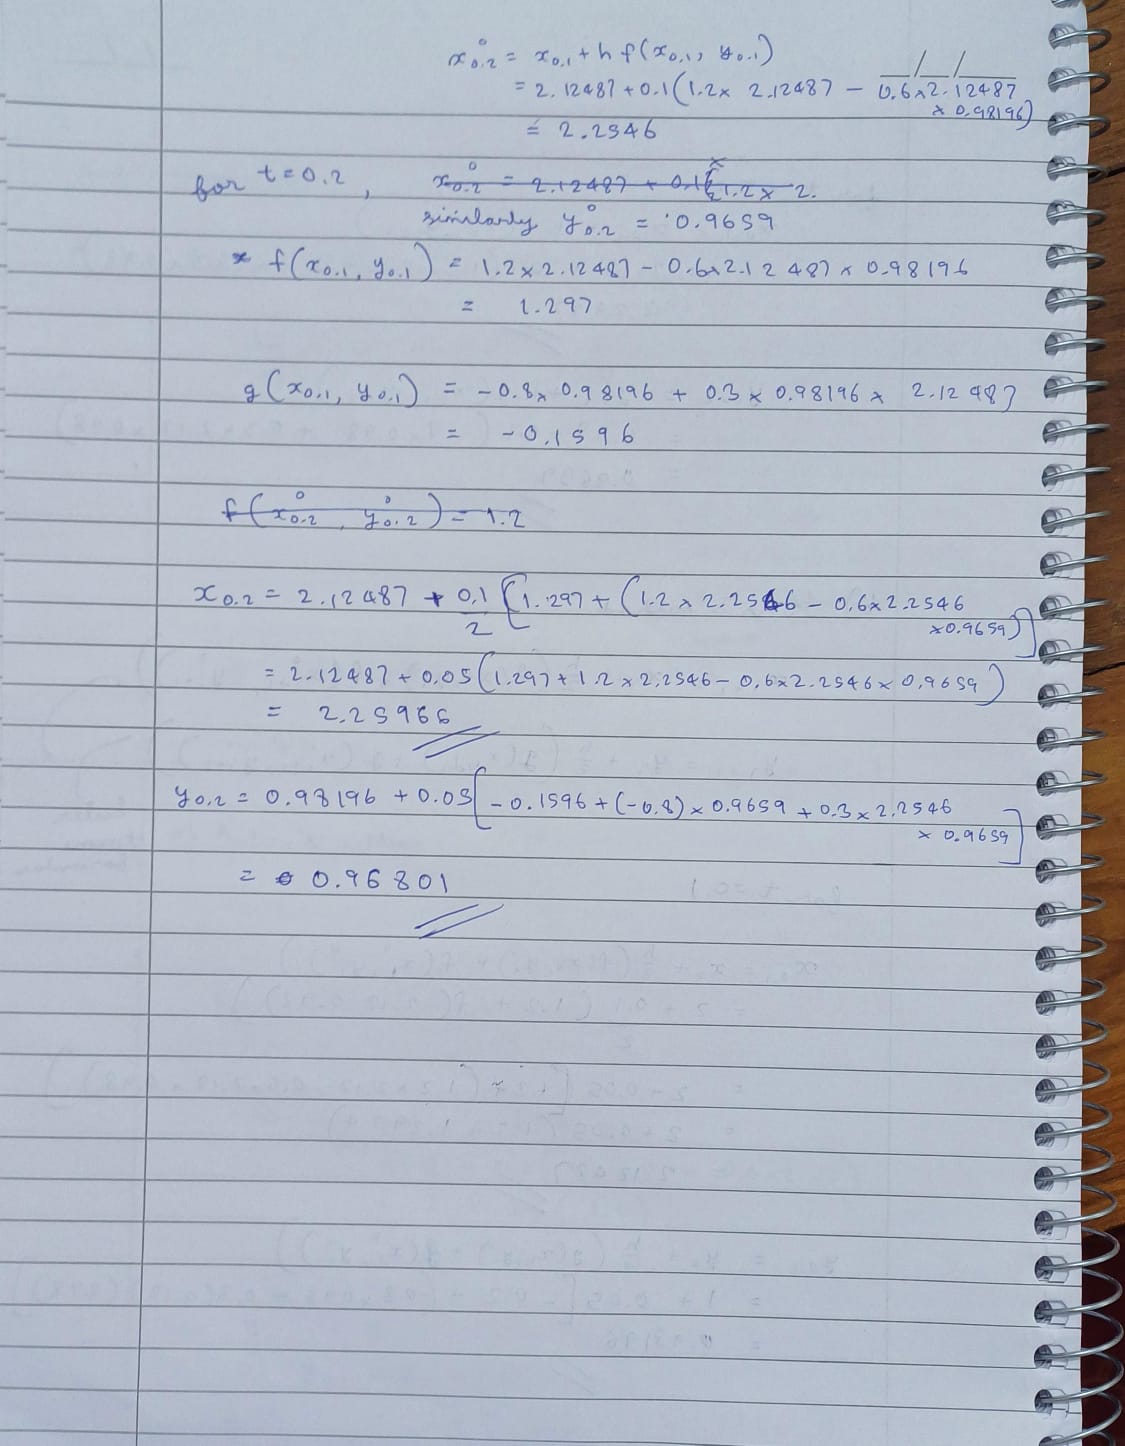 x⁰₀.₂ = x₀.₁ + h f(x₀.₁, y₀.₁)
= 2.12487 + 0.1(1.2 x 2.12487 − 0.6 x 2.12487
x 0.98196)
= 2.2546
for t = 0.2, x⁰₀.₂ = 2.12487 + 0.1( 1.2 x 2.
similarly y⁰₀.₂ = 0.9659
* f(x₀.₁, y₀.₁) = 1.2 x 2.12487 − 0.6 x 2.12487 x 0.98196
= 1.297
g(x₀.₁, y₀.₁) = −0.8 x 0.98196 + 0.3 x 0.98196 x 2.12487
= −0.1596
f(x⁰₀.₂, y⁰₀.₂) = 1.2
x₀.₂ = 2.12487 + 0.1/2 [1.297 + (1.2 x 2.2546 − 0.6 x 2.2546
x 0.9659)]
= 2.12487 + 0.05(1.297 + 1.2 x 2.2546 − 0.6 x 2.2546 x 0.9659)
= 2.25966
y₀.₂ = 0.98196 + 0.05[−0.1596 + (−0.8) x 0.9659 + 0.3 x 2.2546
x 0.9659]
= 0.96801